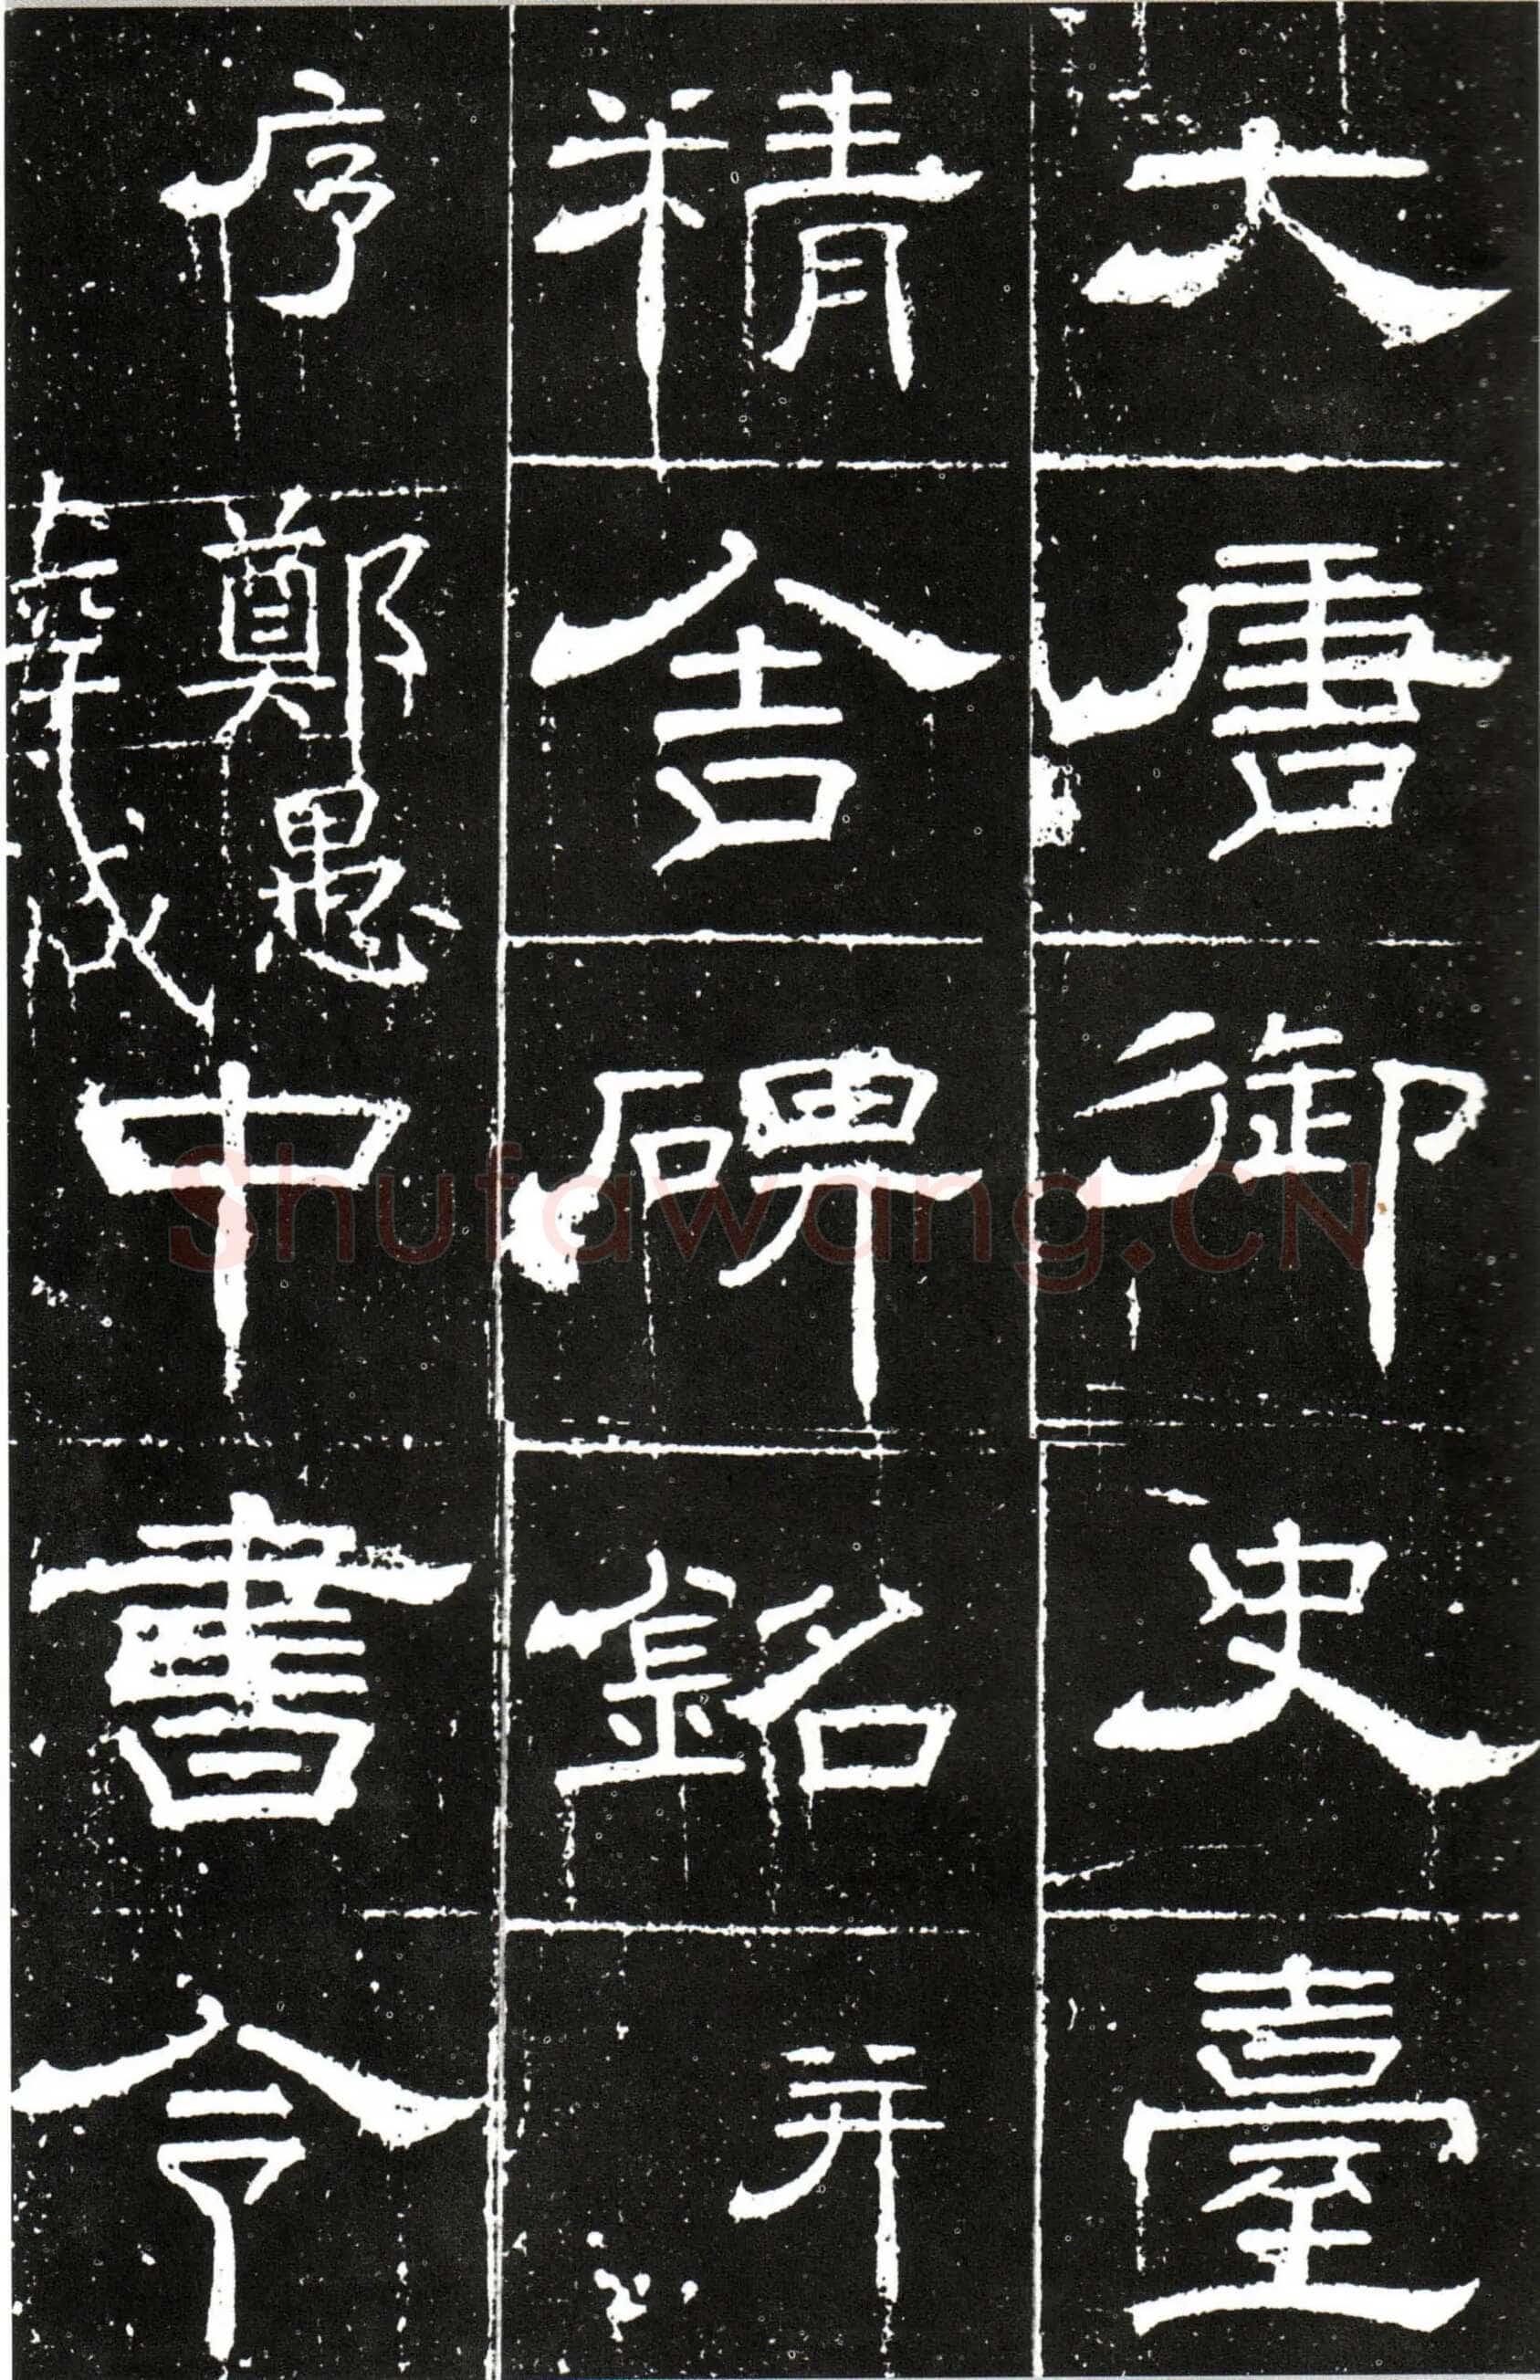 大唐御史臺
精舍碑銘并
序鄭愚中書令
Shufawang.CN